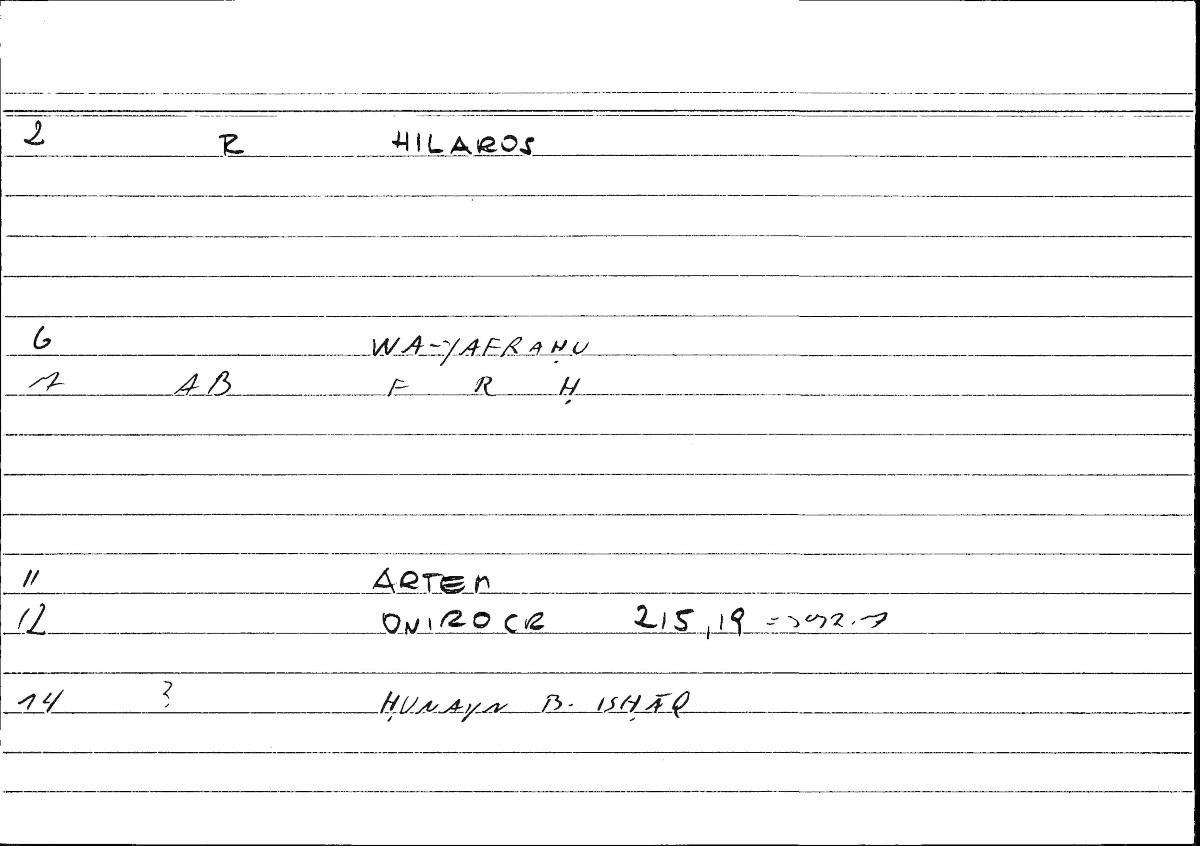 2 R HILAROS
6 WA-YAFRAḤU
7 AB F R Ḥ
11 ARTEM
12 ONIROCR 215,19
14 ? ḤUNAYN B. ISḤĀQ